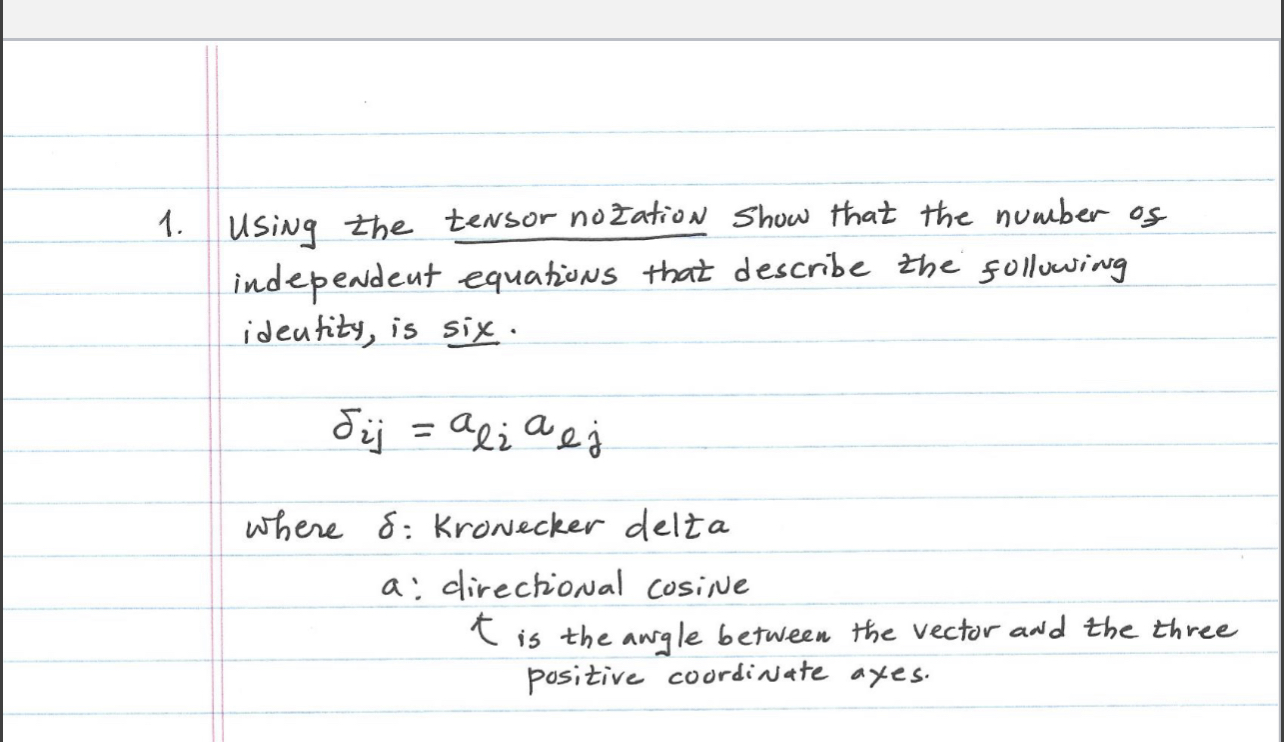 1. Using the tensor notation show that the number of
independent equations that describe the following
identity, is six.
δij = aℓi aℓj
where δ: Kronecker delta
a: directional cosine
↑ is the angle between the vector and the three
positive coordinate axes.